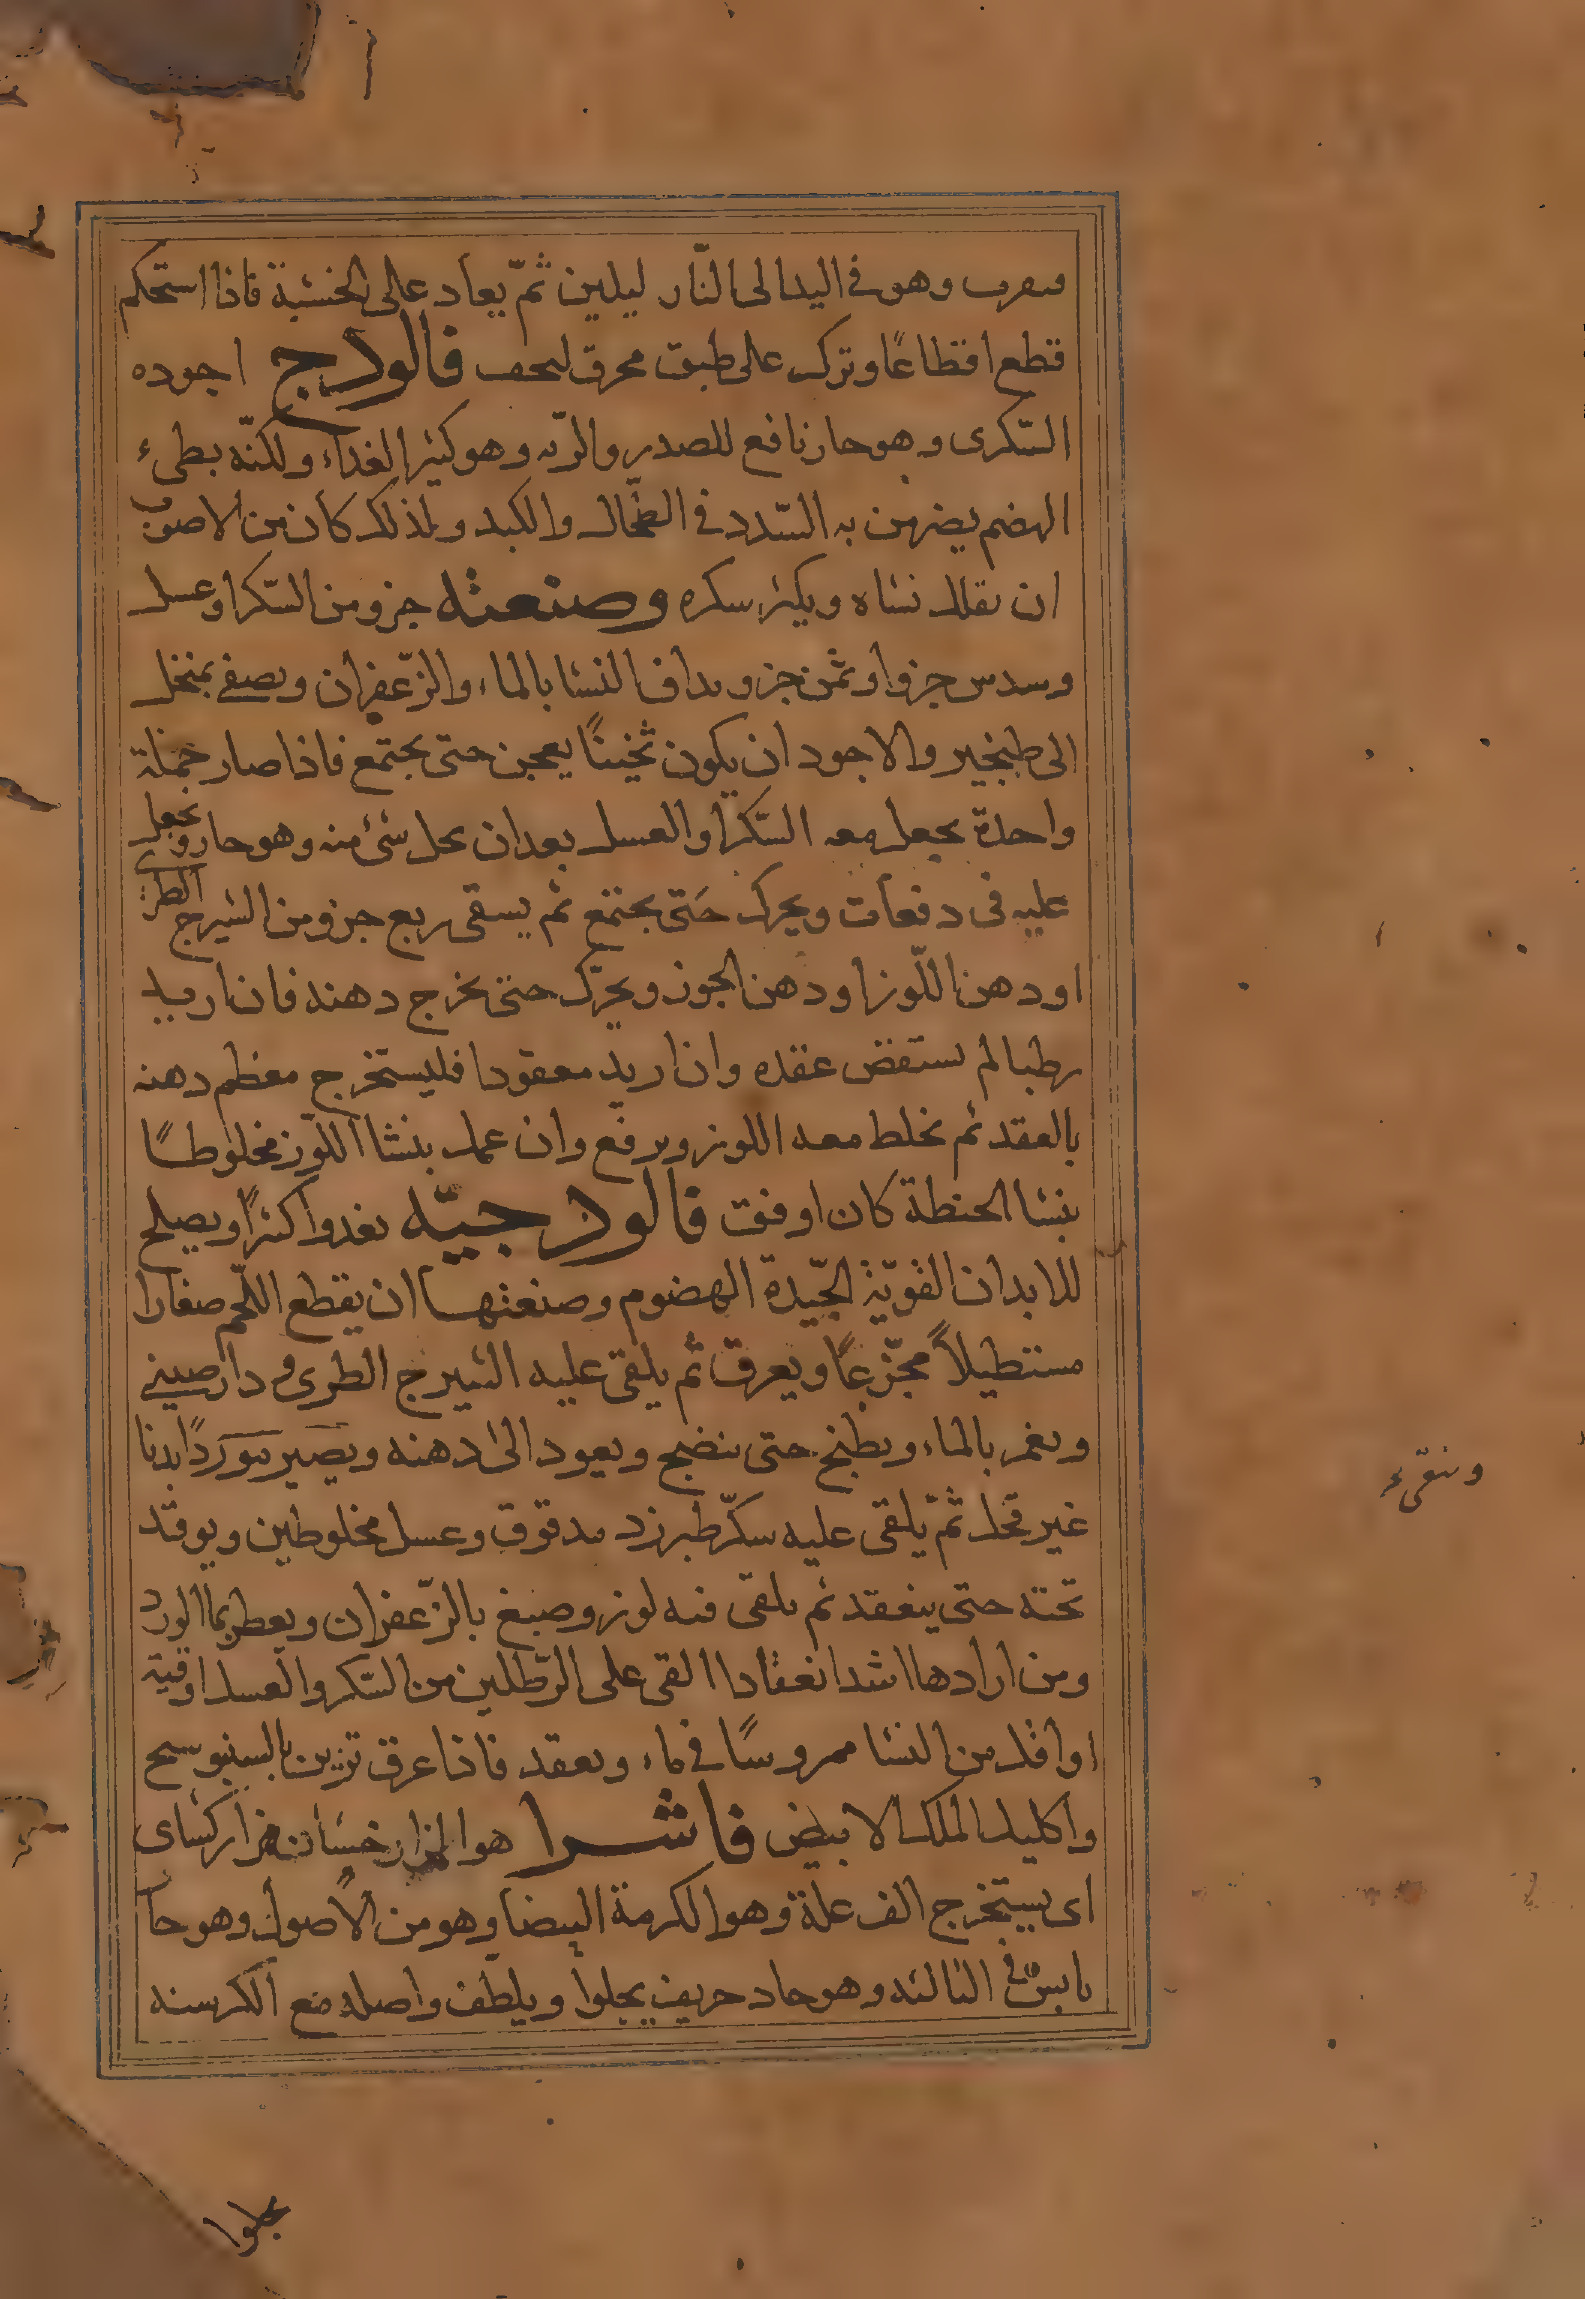 ويقرب وهو في اليد الى النّار ليلين ثمّ يعاد على الخشبة فاذا استحكم
قطع اقطاعًا وترك على طبق محرق ليجف فالوذج اجوده
السّكرى وهو حار نافع للصدر والرّيه وهو كثير الغذاء ولكنّه بطىء
الهضم يضر من به السّدد في الطّحال والكبد ولذلك كان من الاصوب
ان يقلل نشاه ويكثر سكره وصنعته جزو من السّكر او عسل
وسدس جزو او ثمن جزو يداف النشا بالماء والزّعفران ويصفى بمنخل
الى طنجير والاجود ان يكون ثخينًا يعجن حتى يجتمع فاذا صار جملة
واحدة يجعل معه السّكر او العسل بعد ان يحل شئ منه وهو حار ويجعل
عليه في دفعات ويحرك حتى يجتمع ثم يسقى ربع جزو من الشيرج الطرى
او دهن اللّوز او دهن الجوز ويحرّك حتى يخرج دهنه فان اريد
رطبا لم يستقض عقده وان اريد معقودا فليستخرج معظم دهنه
بالعقد ثم يخلط معه اللوز ويرفع وان عمل بنشا اللّوز مخلوطًا
بنشا الحنطة كان اوفق فالوذجيّه يغذوا كثرًا ويصلح
للابدان القويّة الجّيدة الهضوم وصنعتها ان يقطع اللّحم صغارا
مستطيلاً مجّزعًا ويعرق ثم يلقى عليه الشيرج الطرى و دارصيني
ويغمر بالماء ويطبخ حتى ينضج ويعود الى دهنه ويصير موردًا بدنا
غير قحل ثمّ يلقى عليه سكّر طبرزد مدقوق وعسل مخلوطين ويوقد
تحته حتى ينعقد ثم يلقى فيه لوز وصبغ بالزّعفران ويعطر بما الورد
ومن ارادها اشد انعقادا القى على الرّطلين من السّكر والعسل اوقية
او اقل من النشا ممروسًا في ماء ويعقد فاذا عرق تزين بالسنبوسج
واكليل الملك الابيض فاشرا هو الهزارخشان هزاركشاى
اى يستخرج الف علة وهو الكرمة البيضا وهو من الاصول وهو حار
يابس في الثالثه وهو حاد حريف يجلوا ويلطف واصله مع الكرسنه
وينقىء
يجلوا